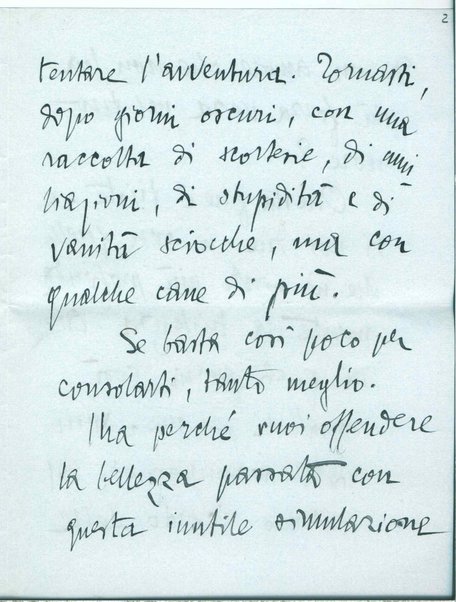 2
tentare l'avventura. Tornasti,
dopo giorni oscuri, con una
raccolta di scortesie, di umi
liazioni, di stupidità e di
vanità sciocche, ma con
qualche cane di più.
Se basta così poco per
consolarti, tanto meglio.
Ma perché vuoi offendere
la bellezza passata con
questa inutile simulazione